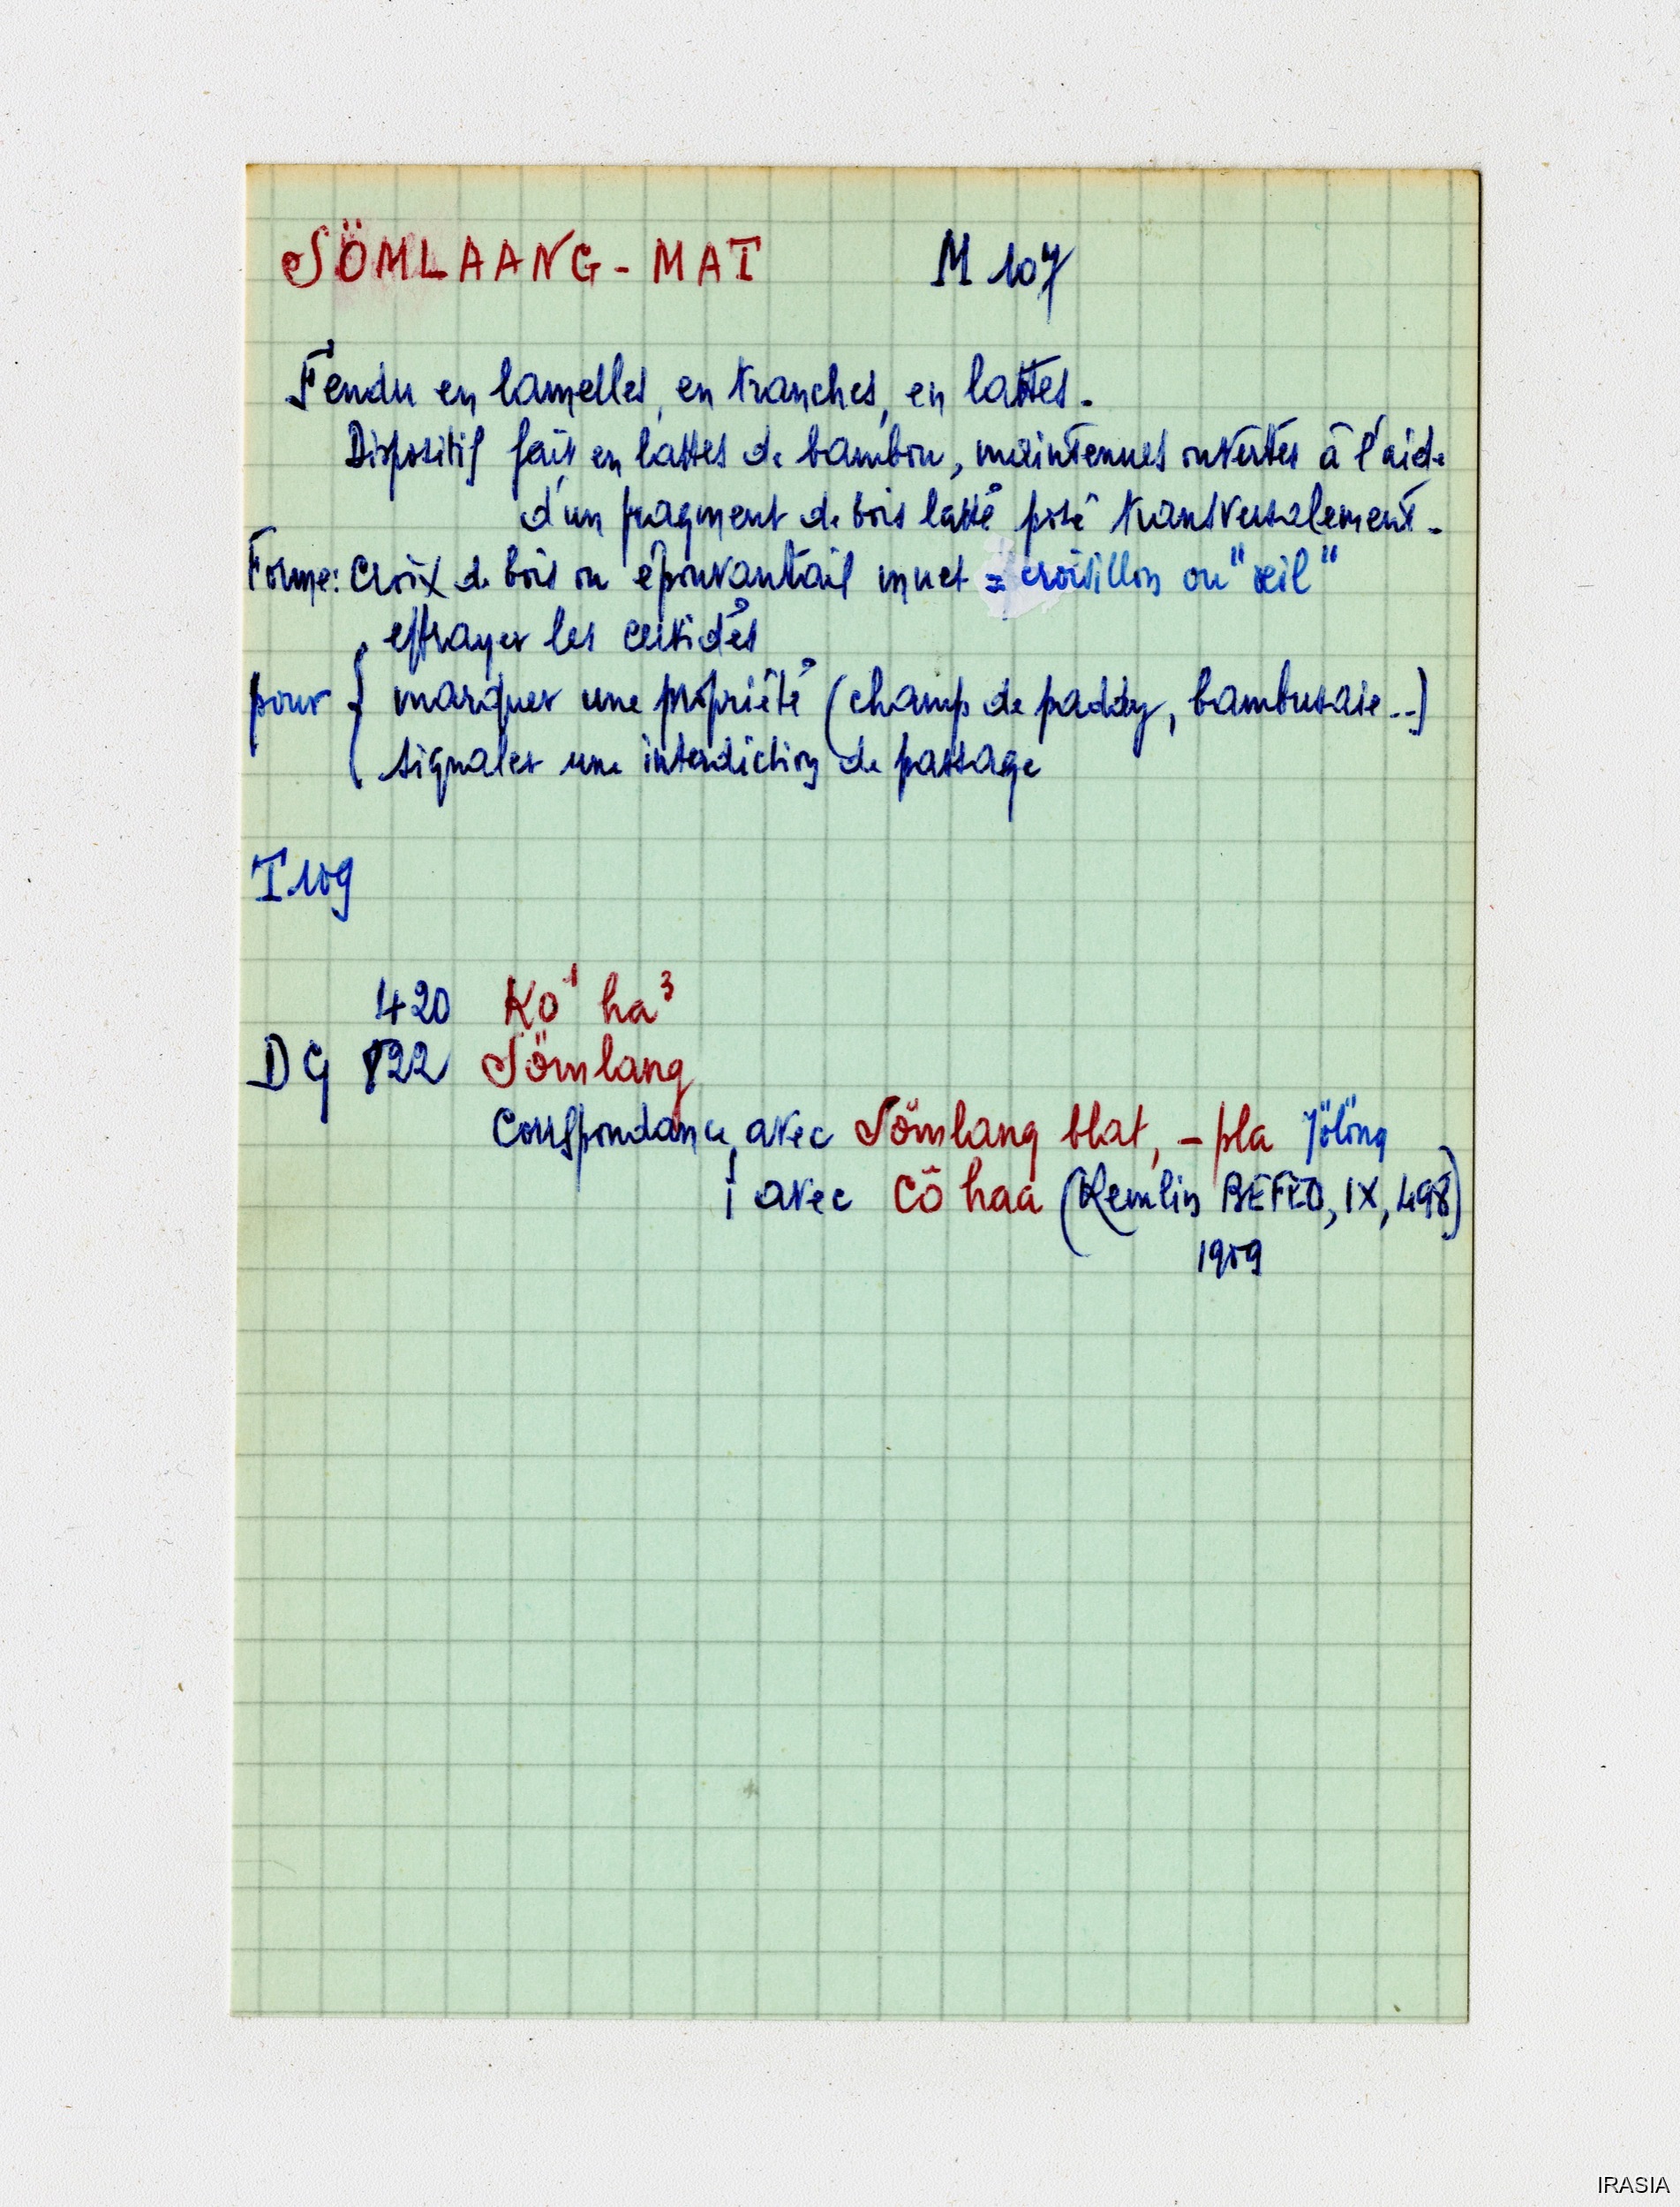 SÖMLAANG-MAT M 107
Fendu en lamelles, en tranches, en lattes.
Dispositif fait en lattes de bambou, maintenues ouvertes à l'aide
d'un fragment de bois latté posé transversalement.
Forme: croix de bois ou épouvantail muet = croisillon ou "œil"
effrayer les cervidés
pour { marquer une propriété (champ de paddy, bambusaie...)
signaler une interdiction de passage
T 109
420 Ko¹ ha³
DG 822 Sömlang
Correspondance, avec Sömlang blat, - pla Jölöng
; avec Cö haa (Kemlin BEFEO, IX, 498)
1909
IRASIA